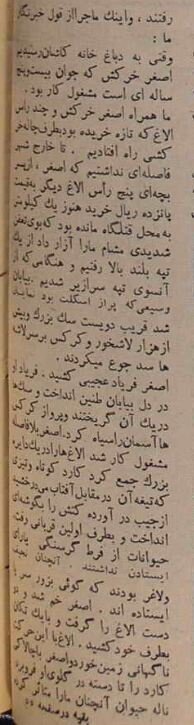 رفتند، و اینک ماجرا از قول خبرنگار
ما :
وقتی به دباغ خانه کاشان رسیدیم
اصغر خرکش که جوان بیست و پنج
ساله ای است مشغول کار بود.
ما همراه اصغر خرکش و چند رأس
الاغ که تازه خریده بود بطرف چاله خر
کشی راه افتادیم . تا خارج شهر
فاصله‌ای نداشتیم که اصغر ، از پسر
بچه‌ای پنج رأس الاغ دیگر به قیمت
پانزده ریال خرید هنوز یک کیلومتر
به محل قتلگاه مانده بود که بوی تعفن
شدیدی مشام مارا آزار داد از یک
تپه بلند بالا رفتیم و هنگامی که از
آنسوی تپه سرازیر شدیم . بیابان
وسیعی که پر از اسکلت بود نمایان
شد قریب دویست سگ بزرگ و بیش
از هزار لاشخور و کرکس بر سر لاشه
ها سد جوع میکردند .
اصغر فریاد عجیبی کشید . فریاد او
در دل بیابان طنین انداخت و سگ‌ها
در یک آن گریختند و پرواز کرکس
ها آسمان را سیاه کرد. اصغر بلافاصله
مشغول کار شد الاغ‌هارا در یک دایره
بزرگ جمع کرد کارد کوتاه و تیزی
که تیغه آن در مقابل آفتاب می‌درخشید
از جیب در آورده کتش را بگوشه‌ای
انداخت و بطرف اولین قربانی رفت.
حیوانات از فرط گرسنگی یارای
ایستادن نداشتند . آنچنان نحیف
ولاغر بودند که گوئی بزور سر پا
ایستاده اند . اصغر خم شد و دو
دست الاغ را گرفت و با یک تکان
بطرف خود کشید . الاغ با این حرکت
ناگهانی زمین خورد و اصغر با چالاکی
کارد را تا دسته در گلوی او فرو برد
ناله حیوان آنچنان مارا متأثر کرد
بقیه در صفحه